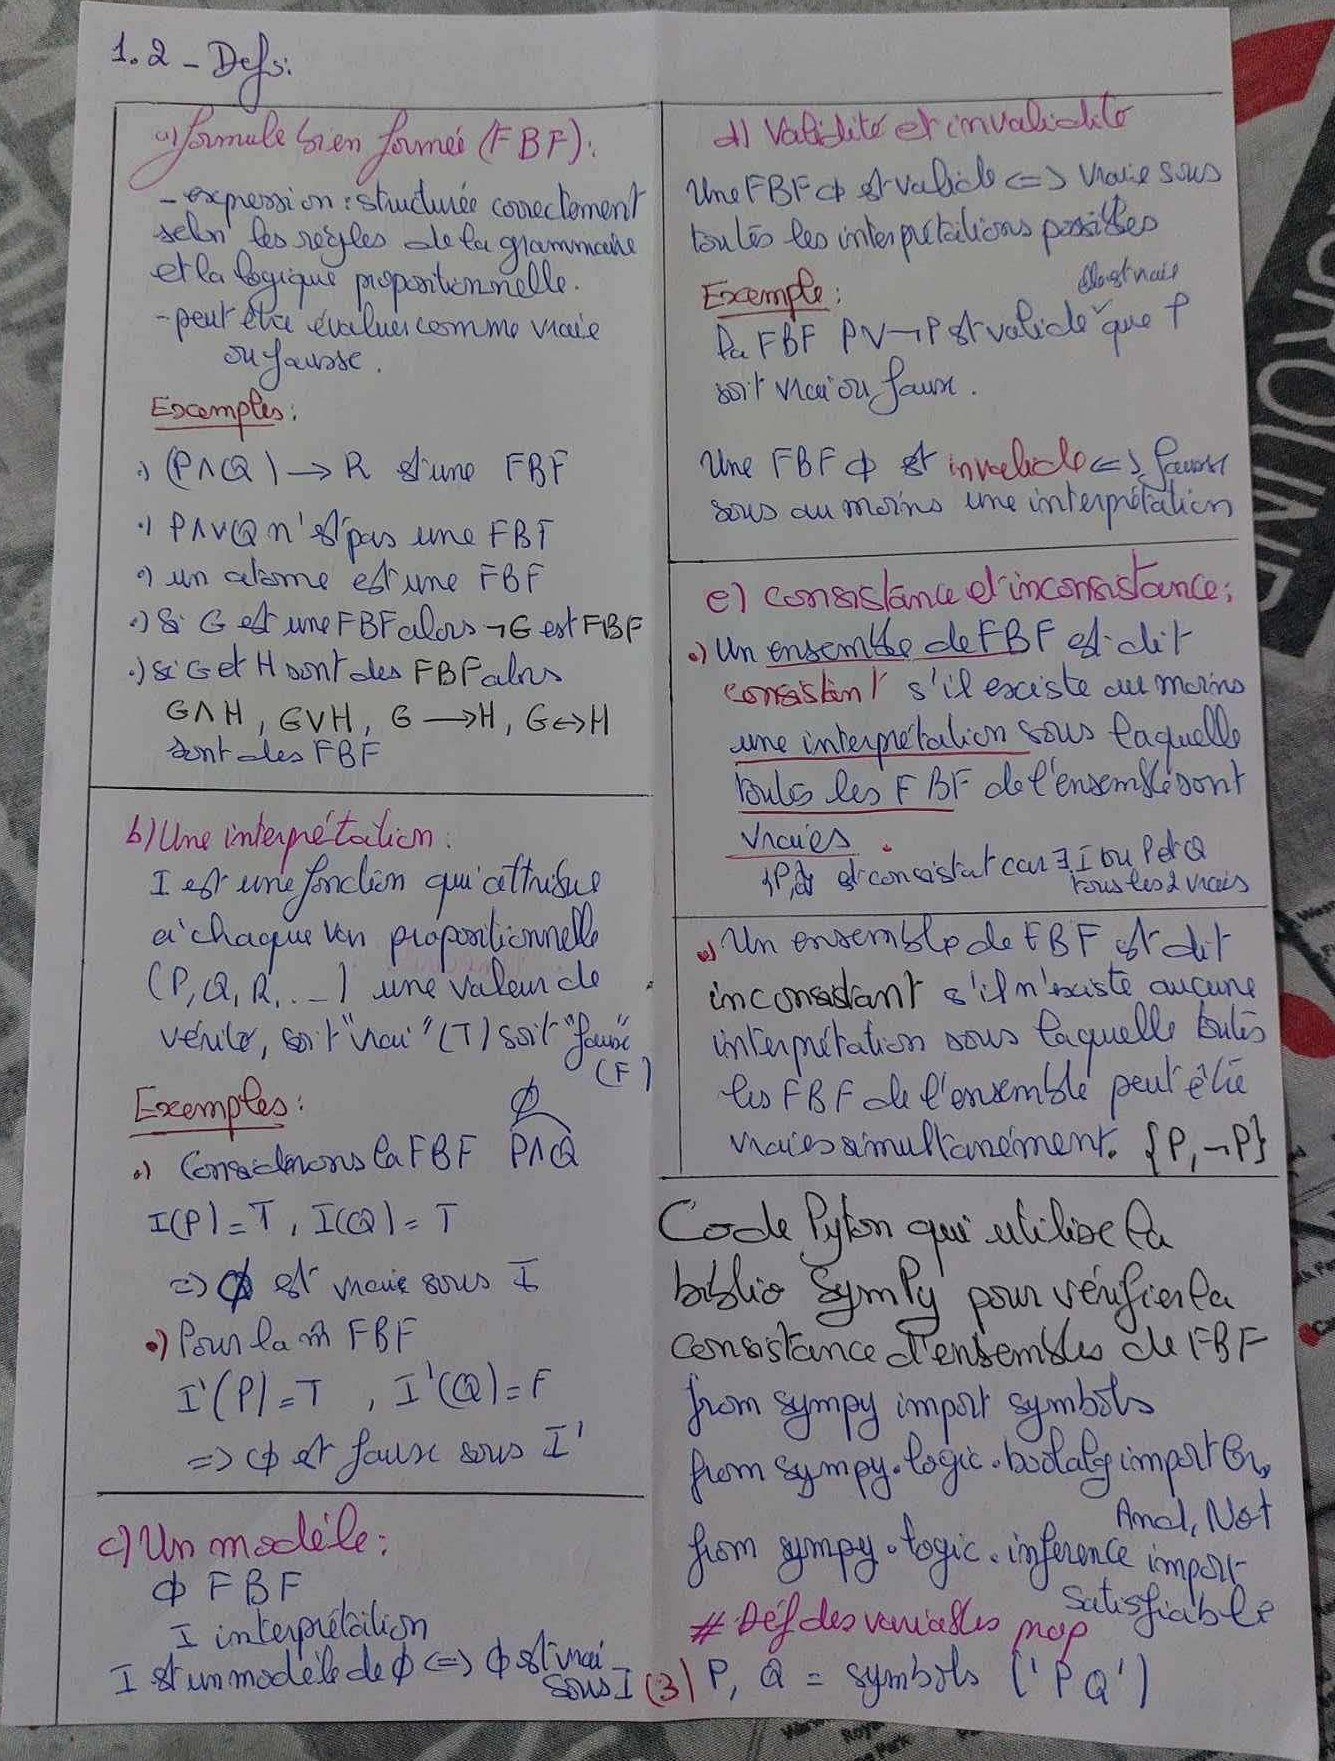 1.2 - Defs:
a) formule bien formée (FBF):
- expression : structurée correctement
selon les règles de la grammaire
et la logique propositionnelle.
- peut être évaluer comme vraie
ou fausse.
Exemples:
.) (P∧Q) → R est une FBF
.) P∧∨Q n'est pas une FBF
.) un atome est une FBF
.) Si G est une FBF alors ¬G est FBF
.) Si G et H sont des FBF alors
G∧H, G∨H, G → H, G ↔ H
sont des FBF
b) Une interprétation:
I est une fonction qui attribue
à chaque var propositionnelle
(P, Q, R, ...) une valeur de
vérité, soit "vrai" (T) soit "faux"
(F)
Exemples:
ϕ
.) Considérons la FBF P∧Q
I(P) = T, I(Q) = T
=> ϕ est vraie sous I
.) Pour la m̂ FBF
I'(P) = T , I'(Q) = F
=> ϕ est fausse sous I'
c) Un modèle:
ϕ FBF
I interprétation
I est un modèle de ϕ <=> ϕ est vrai
sous I
d) Validité et invalidité
Une FBF ϕ est valide <=> vraie sous
toutes les interprétations possibles
Exemple:
elle est vraie
la FBF P∨¬P est valide que P
soit vrai ou faux.
Une FBF ϕ est invalide <=> fausse
sous au moins une interprétation
e) consistance et inconsistance:
.) Un ensemble de FBF est dit
consistant s'il existe au moins
une interprétation sous laquelle
toutes les FBF de l'ensemble sont
vraies.
{P,Q} est consistat car ∃ I ou P et Q
tous les 2 vrais
.) Un ensemble de FBF est dit
inconsistant s'il n'existe aucune
interprétation sous laquelle toutes
les FBF de l'ensemble peut être
vraies simultanément. {P, ¬P}
Code Pyton qui utilise la
biblio SymPy pour vérifier la
consistance d'ensembles de FBF
from sympy import symbols
from sympy.logic.boolalg import Or,
And, Not
from sympy.logic.inference import
satisfiable
# Déf des variables prop
(3) P, Q = symbols ('P Q')